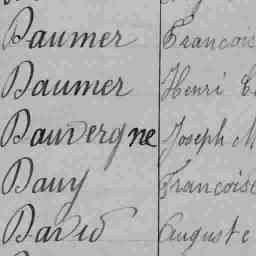 Daumer Francois
Daumer Henri
Dauvergne Joseph M
Dauy Francoise
David Auguste